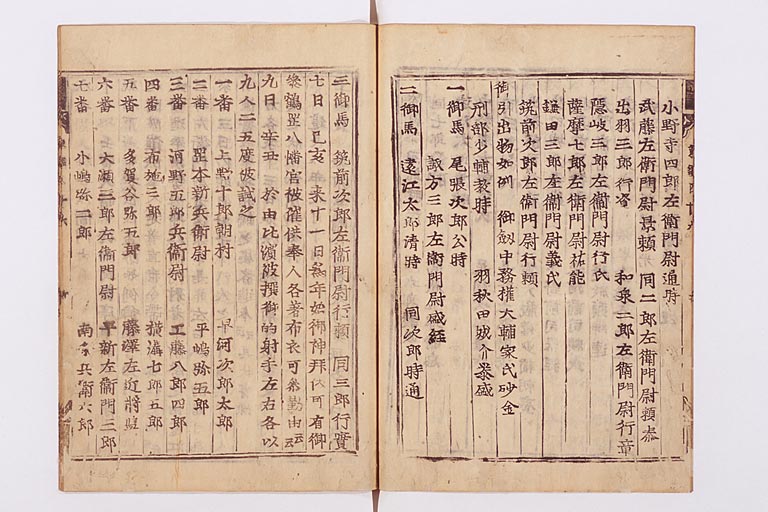 小野寺四郎左衛門尉通時
武藤左衛門尉景頼　同二郎左衛門尉頼泰
出羽三郎行資　和泉二郎左衛門尉行章
隠岐三郎左衛門尉行氏
薩摩七郎左衛門尉祐能
鎌田三郎左衛門尉義氏
筑前次郎左衛門尉行頼
御引出物如例　御釼中務權大輔家氏砂金
刑部少輔教時　羽秋田城介泰盛
一御馬　尾張次郎公時
諏方三郎左衛門尉盛経
二御馬　遠江太郎清時　同次郎時通
三御馬　筑前次郎左衛門尉行頼　同三郎行實
七日　己亥　来十一日為年始御神拜以可有御
叅鶴罡八幡宮被催供奉人各著布衣可叅勤由云云
九日　辛丑　於由比濱被撰御的射手左右各以
九人二五度被試之
一番　上野十郎朝村　早河次郎太郎
二番　罡本新兵衛尉　平嶋弥五郎
三番　河野五郎兵衛尉　工藤八郎四郎
四番　布施三郎　横溝七郎五郎
五番　多賀谷弥五郎　藤澤左近將監
六番　大瀬三郎左衛門尉　平新左衛門三郎
七番　小嶋弥二郎　南条兵衛六郎